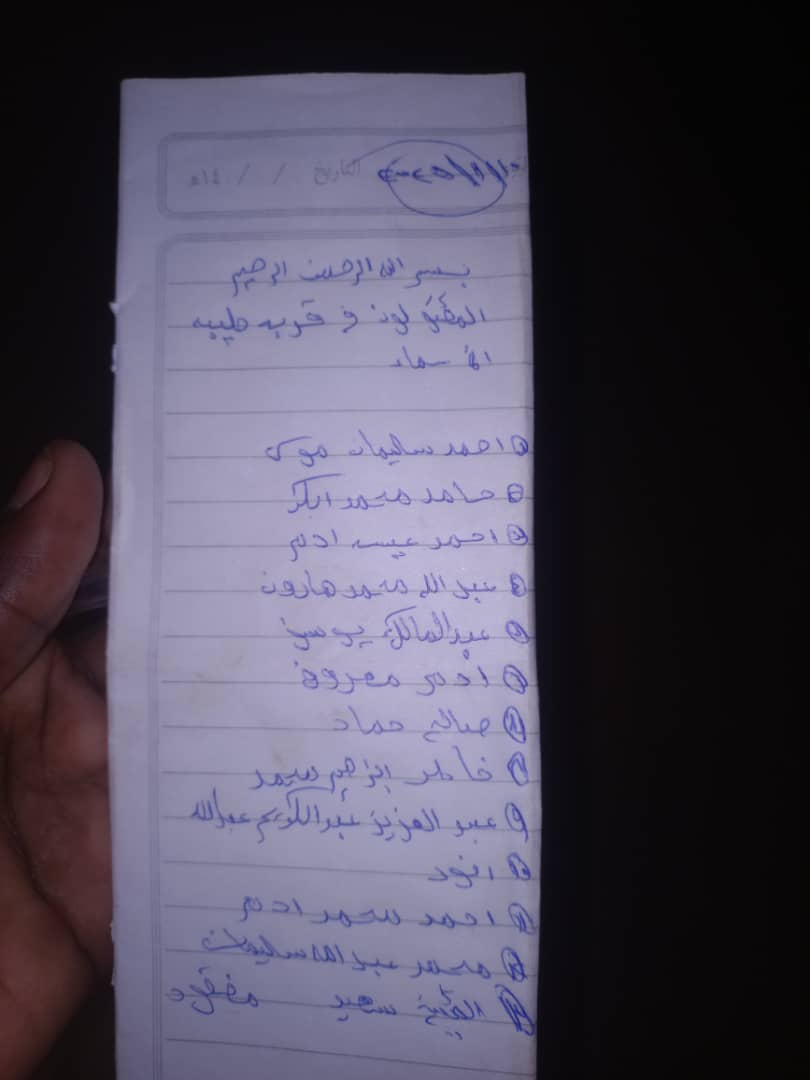 التاريخ / / ١٤م
بسم الله الرحمن الرحيم
المقتولون في قريه طيبه
الأسماء
① احمد سليمان موسى
② حامد محمد ابكر
③ احمد عيسه ادم
④ عبد الله محمد هارون
⑤ عبدالمالك يوسف
⑥ أدم معروف
⑦ صالح حماد
⑧ خاطر إبراهيم محمد
⑨ عبد العزيز عبدالكريم عبدالله
⑩ انور
⑪ احمد محمد ادم
⑫ محمد عبد الله سليمان
⑬ سعيد مفقود